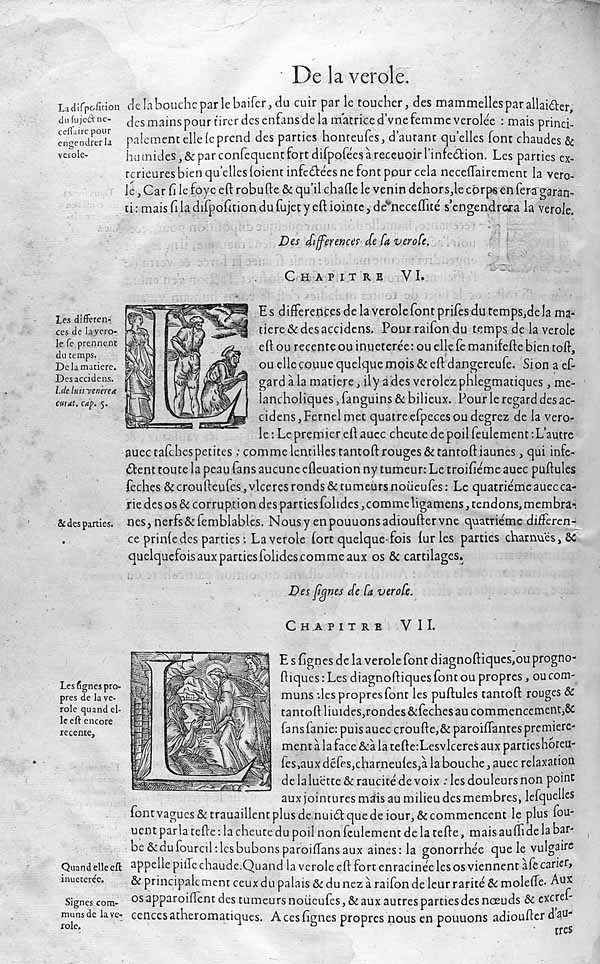 De la verole.
La diſpoſition
du ſujećt ne-
ceſſaire pour
engendrer la
verole-
de la bouche par le baiſer, du cuir par le toucher, des mammelles par allaićter,
des mains pour tirer des enfans de la matrice d'vne femme verolée : mais princi-
palement elle ſe prend des parties honteuſes, d'autant qu'elles ſont chaudes &
humides, & par conſequent fort diſpoſées à receuoir l'infećtion. Les parties ex-
terieures bien qu'elles ſoient infećtées ne font pour cela neceſſairement la vero-
le, Car ſi le foye eſt robuſte & qu'il chaſſe le venin dehors, le corps en ſera garan-
ti : mais ſi la diſpoſition du ſujet y eſt iointe, de neceſſité s'engendrera la verole.
Des differences de la verole.
CHAPITRE VI.
Les differen-
ces de la vero-
le ſe prennent
du temps.
De la matiere.
Des accidens.
l. de luis venereæ
curat. cap. 5.
LEs differences de la verole ſont priſes du temps, de la ma-
tiere & des accidens. Pour raiſon du temps de la verole
eſt ou recente ou inueterée: ou elle ſe manifeſte bien toſt,
ou elle couue quelque mois & eſt dangereuſe. Si on a eſ-
gard à la matiere, il y a des verolez phlegmatiques, me-
lancholiques, ſanguins & bilieux. Pour le regard des ac-
cidens, Fernel met quatre eſpeces ou degrez de la vero-
le : Le premier eſt auec cheute de poil ſeulement : L'autre
auec taſches petites : comme lentilles tantoſt rouges & tantoſt iaunes, qui infe-
ćtent toute la peau ſans aucune eſleuation ny tumeur: Le troiſiéme auec puſtules
ſeches & crouſteuſes, vlceres ronds & tumeurs noüeuſes : Le quatriéme auec ca-
rie des os & corruption des parties ſolides, comme ligamens, tendons, membra-
nes, nerfs & ſemblables. Nous y en pouuons adiouſter vne quatriéme differen-
ce prinſe des parties : La verole ſort quelque-fois ſur les parties charnuës, &
quelquefois aux parties ſolides comme aux os & cartilages.
& des parties.
Des ſignes de la verole.
CHAPITRE VII.
Les ſignes pro-
pres de la ve-
role quand el-
le eſt encore
recente,
LEs ſignes de la verole ſont diagnoſtiques, ou progno-
ſtiques : Les diagnoſtiques ſont ou propres, ou com-
muns : les propres ſont les puſtules tantoſt rouges &
tantoſt liuides, rondes & ſeches au commencement, &
ſans ſanie: puis auec crouſte, & paroiſſantes premiere-
ment à la face & à la teſte: Les vlceres aux parties hōteu-
ſes, aux déſes, charneuſes, à la bouche, auec relaxation
de la luëtte & raucité de voix : les douleurs non point
aux jointures mais au milieu des membres, leſquelles
ſont vagues & trauaillent plus de nuićt que de iour, & commencent le plus ſou-
uent par la teſte : la cheute du poil non ſeulement de la teſte, mais auſſi de la bar-
be & du ſourcil : les bubons paroiſſans aux aines : la gonorrhée que le vulgaire
appelle piſſe chaude. Quand la verole eſt fort enracinée les os viennent à ſe carier,
& principalement ceux du palais & du nez à raiſon de leur rarité & moleſſe. Aux
os apparoiſſent des tumeurs noüeuſes, & aux autres parties des nœuds & excreſ-
cences atheromatiques. A ces ſignes propres nous en pouuons adiouſter d'au-
tres
Quand elle eſt
inueterée.
Signes com-
muns de la ve-
role.